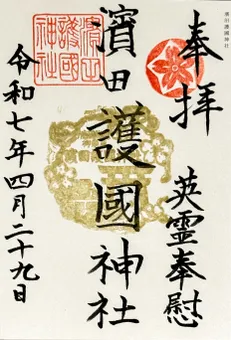 濱田護國神社
奉拝
英霊奉慰
濱田護國神社
濱田護國神社
令和七年四月二十九日